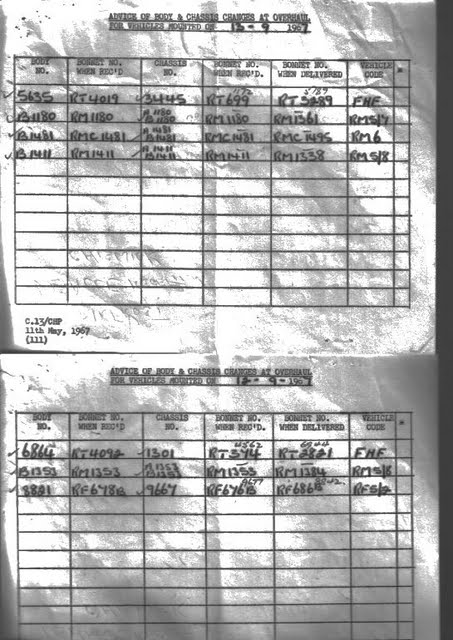 ADVICE OF BODY & CHASSIS CHANGES AT OVERHAUL
FOR VEHICLES MOUNTED ON 13 - 9 - 1967
BODY NO. BONNET NO. WHEN REC'D CHASSIS NO. BONNET NO. WHEN REC'D. BONNET NO. WHEN DELIVERED VEHICLE CODE *
5635 RT4019 3445 RT699 RT3289 FHF
B1180 RM1180 A1180 B1180 RM1180 RM1361 RM5/7
B1481 RMC1481 A1481 B1481 RMC1481 RMC1495 RM6
B1411 RM1411 A1411 B1411 RM1411 RM1338 RM5/8
C.13/CHP
11th May, 1967
(111)
ADVICE OF BODY & CHASSIS CHANGES AT OVERHAUL
FOR VEHICLES MOUNTED ON 12 - 9 - 1967
BODY NO. BONNET NO. WHEN REC'D CHASSIS NO. BONNET NO. WHEN REC'D. BONNET NO. WHEN DELIVERED VEHICLE CODE *
6864 RT4092 1301 4562 RT574 RT2821 FHF
B1353 RM1353 A1353 B1353 RM1353 RM1384 RM5/8
8821 RF678B 9667 9677 RF676B RF686B RF5/2